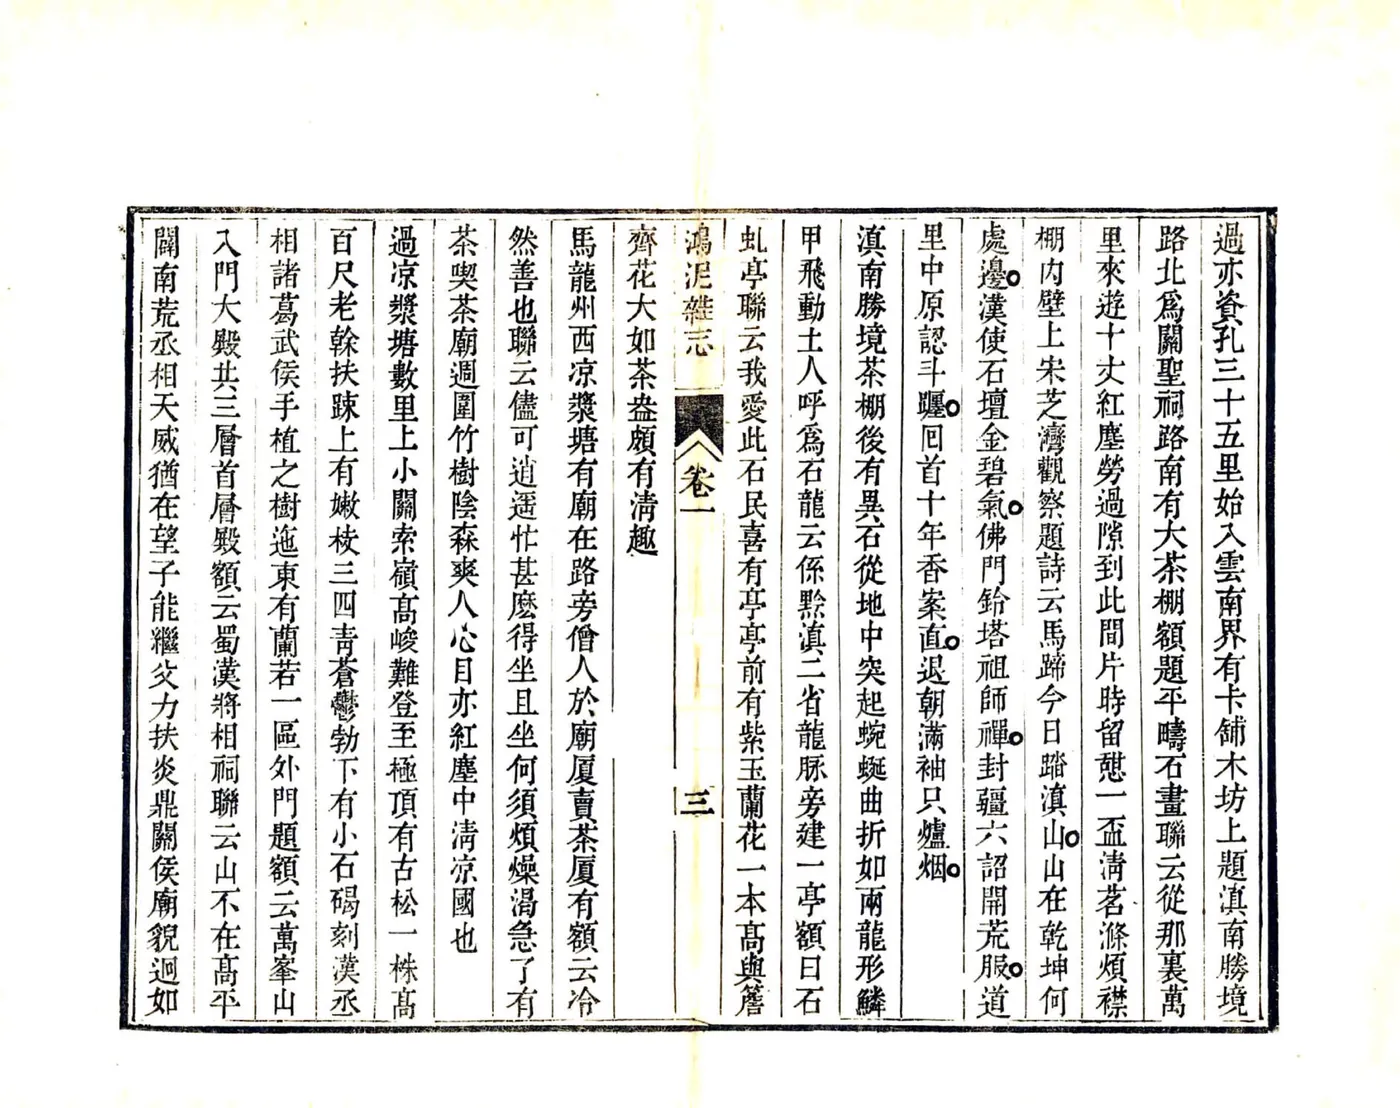 過亦資孔三十五里始入雲南界有卡舖木坊上題滇南勝境
路北爲關聖祠路南有大茶棚額題平疇石畫聯云從那裏萬
里來遊十丈紅塵勞過隙到此間片時留憇一盃淸茗滌煩襟
棚內壁上宋芝灣觀察題詩云馬蹄今日踏滇山山在乾坤何
處邊漢使石壇金碧氣佛門鈴塔祖師禪封疆六詔開荒服道
里中原認斗躔回首十年香案直退朝滿袖只爐烟
滇南勝境茶棚後有異石從地中突起蜿蜒曲折如兩龍形鱗
甲飛動土人呼爲石龍云係黔滇二省龍脈旁建一亭額曰石
虬亭聯云我愛此石民喜有亭亭前有紫玉蘭花一本高與簷
齊花大如茶盎頗有淸趣
鴻泥雜志 卷一 三
馬龍州西凉漿塘有廟在路旁僧人於廟厦賣茶厦有額云冷
然善也聯云儘可逍遥忙甚麽得坐且坐何須煩燥渴急了有
茶喫茶廟週圍竹樹陰森爽人心目亦紅塵中淸凉國也
過凉漿塘數里上小關索嶺高峻難登至極頂有古松一株高
百尺老榦扶踈上有嫩枝三四靑蒼鬱勃下有小石碣刻漢丞
相諸葛武侯手植之樹迤東有蘭若一區外門題額云萬峯山
入門大殿共三層首層殿額云蜀漢將相祠聯云山不在高平
闢南荒丞相天威猶在望子能繼父力扶炎鼎關侯廟貌迥如